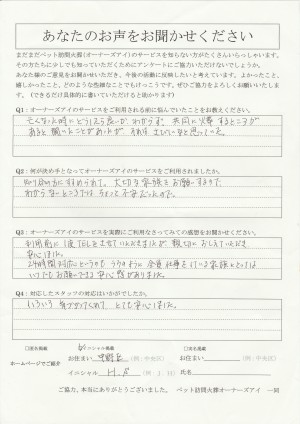 あなたのお声をお聞かせください
まだまだペット訪問火葬(オーナーズアイ)のサービスを知らない方がたくさんいらっしゃいます。
その方たちに少しでも知っていただくためにアンケートにご協力いただけないでしょうか。
あなた様のご意見をお聞かせいただき、今後の活動に反映したいと考えています。よかったこと、
嬉しかったこと、どのような些細なことでもけっこうです。ぜひご協力をよろしくお願いいたします。
(できるだけ具体的に書いていただけると助かります)
Q1:オーナーズアイのサービスをご利用される前に悩んでいたことをお教えください。
亡くなった時にどうしたら良いかわからず、共同に火葬するところが
あると聞いたことがあったが、それは
Q2:何が決め手となってオーナーズアイのサービスをご利用されましたか。
知り合いの方にすすめられて。大切な家族をお願いするので、
わからないところではちょっと不安だったので。
Q3:オーナーズアイのサービスを実際にご利用なさってみての感想をお聞かせください。
利用前に1度TELをさせていただきましたが親切におしえていただき
安心しました。
24時間対応というのも うちのように全員仕事をしている家族にとっては
いつでもお願いできる安心感がありました。
Q4:対応したスタッフの対応はいかがでしたか。
いろいろ気づかってくれて、とても安心しました。
□実名掲載
イニシャル掲載
□匿名掲載
ホームページでご紹介
お住まい 中野区 (例:中央区)
お住まい (例:中央区)
イニシャル H.S (例:J.H)
氏名
ご協力、本当にありがとうございました。 ペット訪問火葬オーナーズアイ 一同